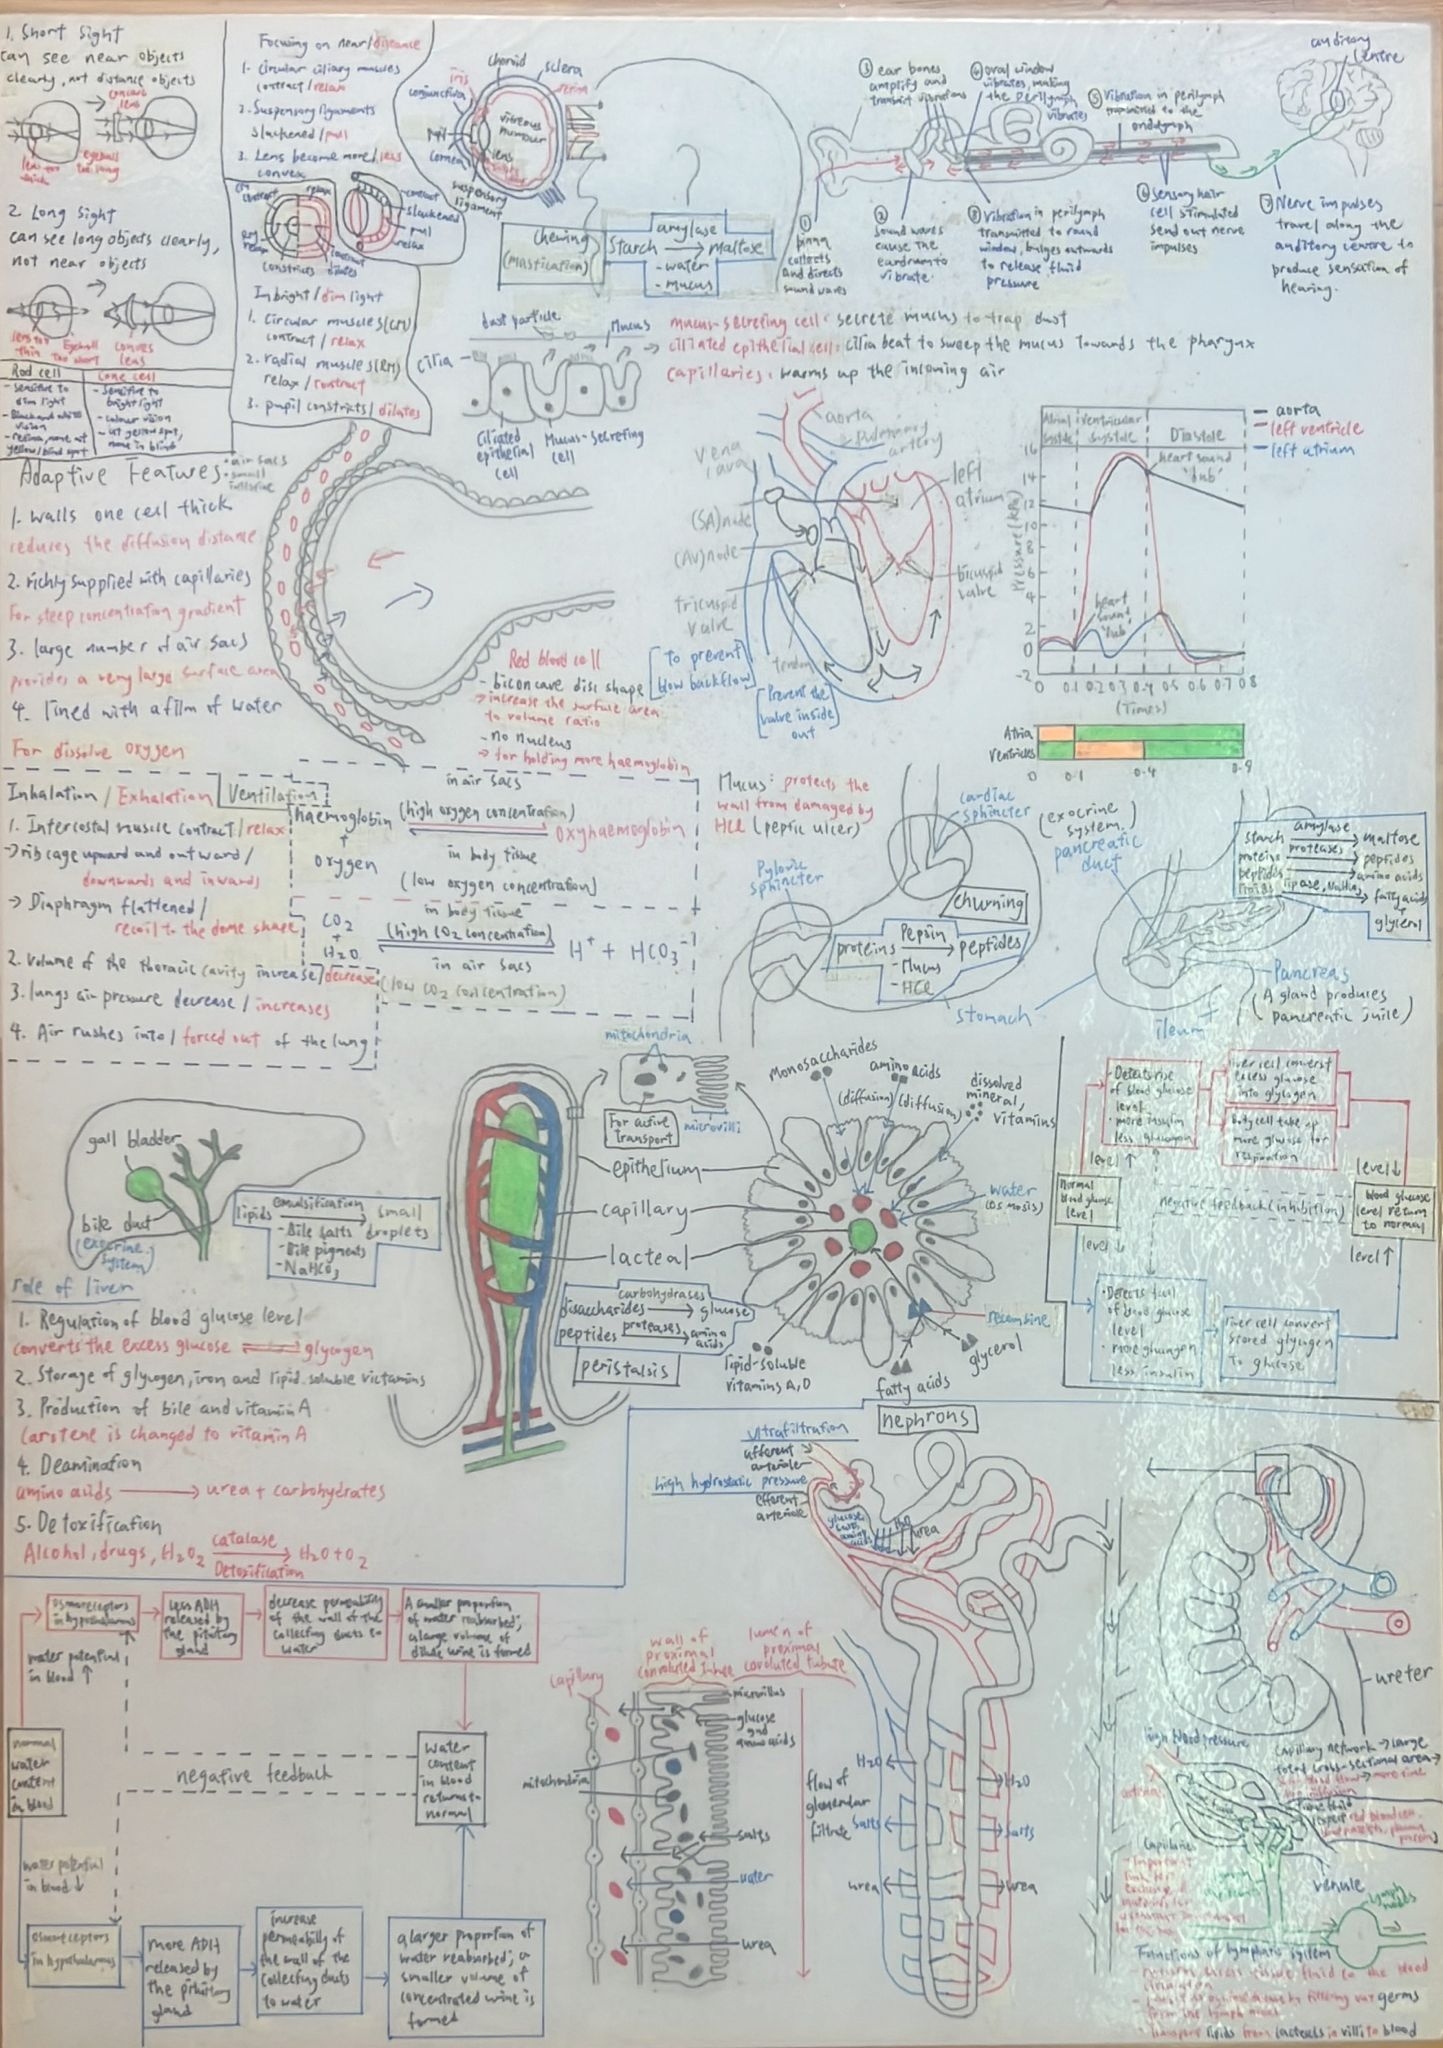 1. Short Sight
can see near objects
clearly, not distance objects
concave
lens
lens too
thick
eyeball
too long
2. Long Sight
can see long objects clearly,
not near objects
lens too
thin
Eyeball
too short
convex
lens
Rod cell
- sensitive to
dim light
- Black and white
vision
Cone cell
- Sensitive to
bright light
- colour vision
- at yellow spot,
none in blind
Focusing on near/distance
1. circular ciliary muscles
contract/relax
2. Suspensory ligaments
slackened/pull
3. Lens become more/less
convex
contract
slackened
pull
relax
relax
constricts
dilates
In bright/dim light
1. Circular muscles(CM)
contract/relax
2. radial muscles(RM)
relax/contract
3. pupil constricts/dilates
choroid
sclera
iris
retina
conjunctiva
vitreous
humour
pupil
cornea
lens
suspensory
ligament
chewing
(mastication)
amylase
Starch → maltose
- water
- mucus
auditory
centre
① pinna
collects
and directs
sound waves
② sound waves
cause the
eardrum to
vibrate.
③ ear bones
amplify and
transmit vibrations
④ oval window
vibrates, making
the perilymph
vibrates
⑤ Vibration in perilymph
transmitted to the
endolymph
⑥ Sensory hair
cell stimulated
send out nerve
impulses
⑦ Nerve impulses
travel along the
auditory centre to
produce sensation of
hearing.
⑧ Vibration in perilymph
transmitted to round
window, bulges outwards
to release fluid
pressure
dust particle
Mucus
cilia
Ciliated
epithelial
cell
Mucus-Secreting
cell
mucus-secreting cell: secrete mucus to trap dust
ciliated epithelial cell: cilia beat to sweep the mucus towards the pharynx
capillaries: warms up the incoming air
Adaptive Features
• air sacs
• small
intestine
1. walls one cell thick
reduces the diffusion distance
2. richly supplied with capillaries
For steep concentration gradient
3. large number of air sacs
provides a very large surface area
4. lined with a film of water
For dissolve oxygen
Red blood cell
- biconcave disc shape
→ increase the surface area
to volume ratio
- no nucleus
→ for holding more haemoglobin
aorta
Pulmonary
artery
vena
cava
left
atrium
(SA)node
(AV)node
bicuspid
valve
tricuspid
valve
tendon
[To prevent
blow backflow]
[Prevent the
valve inside
out]
Atrial
systole
ventricular
systole
Diastole
— aorta
— left ventricle
— left atrium
heart sound
'dub'
heart
sound
'lub'
Pressure(kPa)
16
14
12
10
8
6
4
2
0
-2
0 0.1 0.2 0.3 0.4 0.5 0.6 0.7 0.8
(Times)
Atria
Ventricles
0 0.1 0.4 0.9
Inhalation / Exhalation
Ventilation
1. Intercostal muscle contract/relax
→ rib cage upward and outward/
downwards and inwards
→ Diaphragm flattened/
recoil to the dome shape
2. volume of the thoracic cavity increase/decrease
3. lungs air pressure decrease/increases
4. Air rushes into/forced out of the lung
in air sacs
haemoglobin
+
oxygen
(high oxygen concentration)
Oxyhaemoglobin
in body tissue
(low oxygen concentration)
in body tissue
CO₂
+
H₂O
(high CO₂ concentration)
H⁺ + HCO₃⁻¹
in air sacs
(low CO₂ concentration)
Mucus: protects the
wall from damaged by
HCl (peptic ulcer)
cardiac
sphincter
Pyloric
sphincter
churning
Pepsin
proteins → peptides
- Mucus
- HCl
stomach
(exocrine
system)
pancreatic
duct
amylase
starch → maltose
proteases
proteins → peptides
peptides → amino acids
lipids lipase, NaHCO₃ → fatty acids
+
glycerol
Pancreas
(A gland produces
pancreatic juile)
ileum
gall bladder
bile duct
(exocrine
system)
emulsification
lipids → small
droplets
- Bile salts
- Bile pigments
- NaHCO₃
role of liver
1. Regulation of blood glucose level
converts the excess glucose ⇌ glycogen
2. Storage of glycogen, iron and lipid-soluble victamins
3. Production of bile and vitamin A
carotene is changed to vitamin A
4. Deamination
amino acids → urea + carbohydrates
5. Detoxification
Alcohol, drugs, H₂O₂ catalase → H₂O+O₂
Detoxification
mitochondria
For active
transport
microvilli
epithelium
capillary
lacteal
carbohydrases
disaccharides → glucose
peptides proteases → amino
acids
peristalsis
monosaccharides
amino acids
(diffusion)
(diffusion)
dissolved
mineral,
vitamins
water
(osmosis)
recombine
glycerol
fatty acids
lipid-soluble
vitamins A,D
• Detects rise
of blood glucose
level
• more insulin
less glucagon
liver cell convert
excess glucose
into glycogen
Body cell take up
more glucose for
respiration
level ↑
level ↓
Normal
blood glucose
level
negative feedback(inhibition)
blood glucose
level return
to normal
level ↓
level ↑
• Detects fall
of blood glucose
level
• more glucagon
less insulin
liver cell convert
stored glycogen
to glucose
nephrons
ultrafiltration
afferent
arteriole
high hydrostatic pressure
efferent
arteriole
glucose
urea
H₂O
salts
urea
H₂O
salts
urea
ureter
osmoreceptors
in hypothalamus
Less ADH
released by
the pituitary
gland
decrease permeability
of the wall of the
collecting ducts to
water
A smaller proportion
of water reabsorbed;
a large volume of
dilute urine is formed
water potential
in blood ↑
normal
water
content
in blood
negative feedback
water
content
in blood
returns to
normal
water potential
in blood ↓
osmoreceptors
in hypothalamus
more ADH
released by
the pituitary
gland
increase
permeability of
the wall of the
collecting ducts
to water
a larger proportion of
water reabsorbed; a
smaller volume of
concentrated urine is
formed
capillary
wall of
proximal
convoluted tubule
lumen of
proximal
convoluted tubule
microvillus
glucose
and
amino acids
mitochondria
salts
water
urea
flow of
glomerular
filtrate
high blood pressure
capillary network → large
total cross-sectional area →
capillaries
venule
lymph
nodes
Functions of lymphatic system
- returns excess tissue fluid to the blood
circulation
germs
from the lymph nodes
- Transport lipids from lacteals in villi to blood